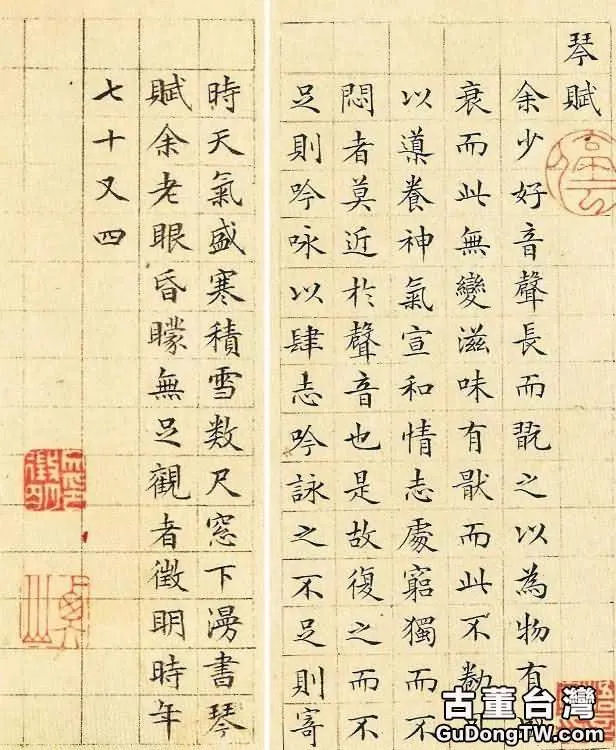 琴賦
余少好音聲長而翫之以為物有
衰而此無變滋味有猒而此不勌
以導養神氣宣和情志處窮獨而不
悶者莫近於聲音也是故復之而不
足則吟咏以肆志吟詠之不足則寄
時天氣盛寒積雪数尺窓下漫書琴
賦余老眼昏矇無足觀者徵明時年
七十又四
古董台灣
GuDongTW.com